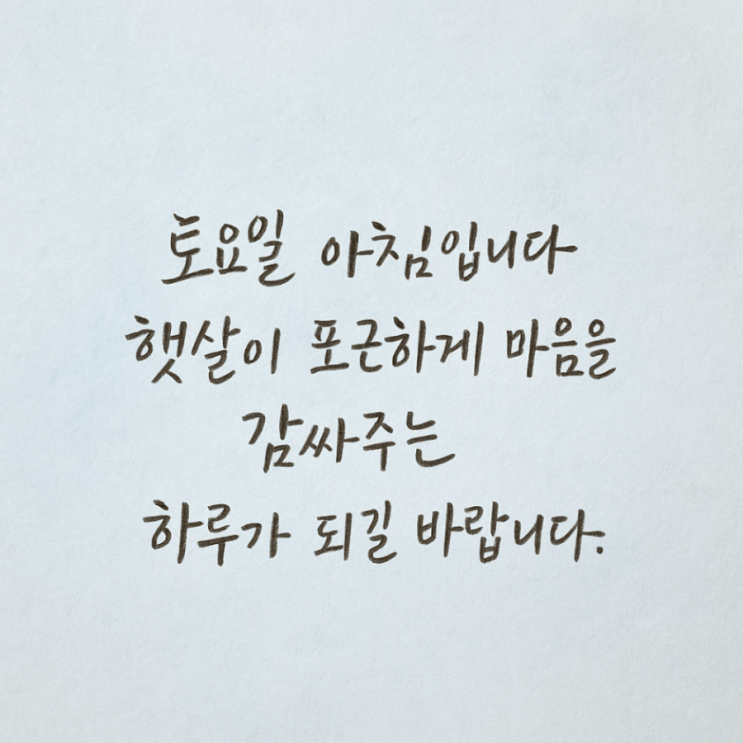 토요일 아침입니다
햇살이 포근하게 마음을
감싸주는
하루가 되길 바랍니다.